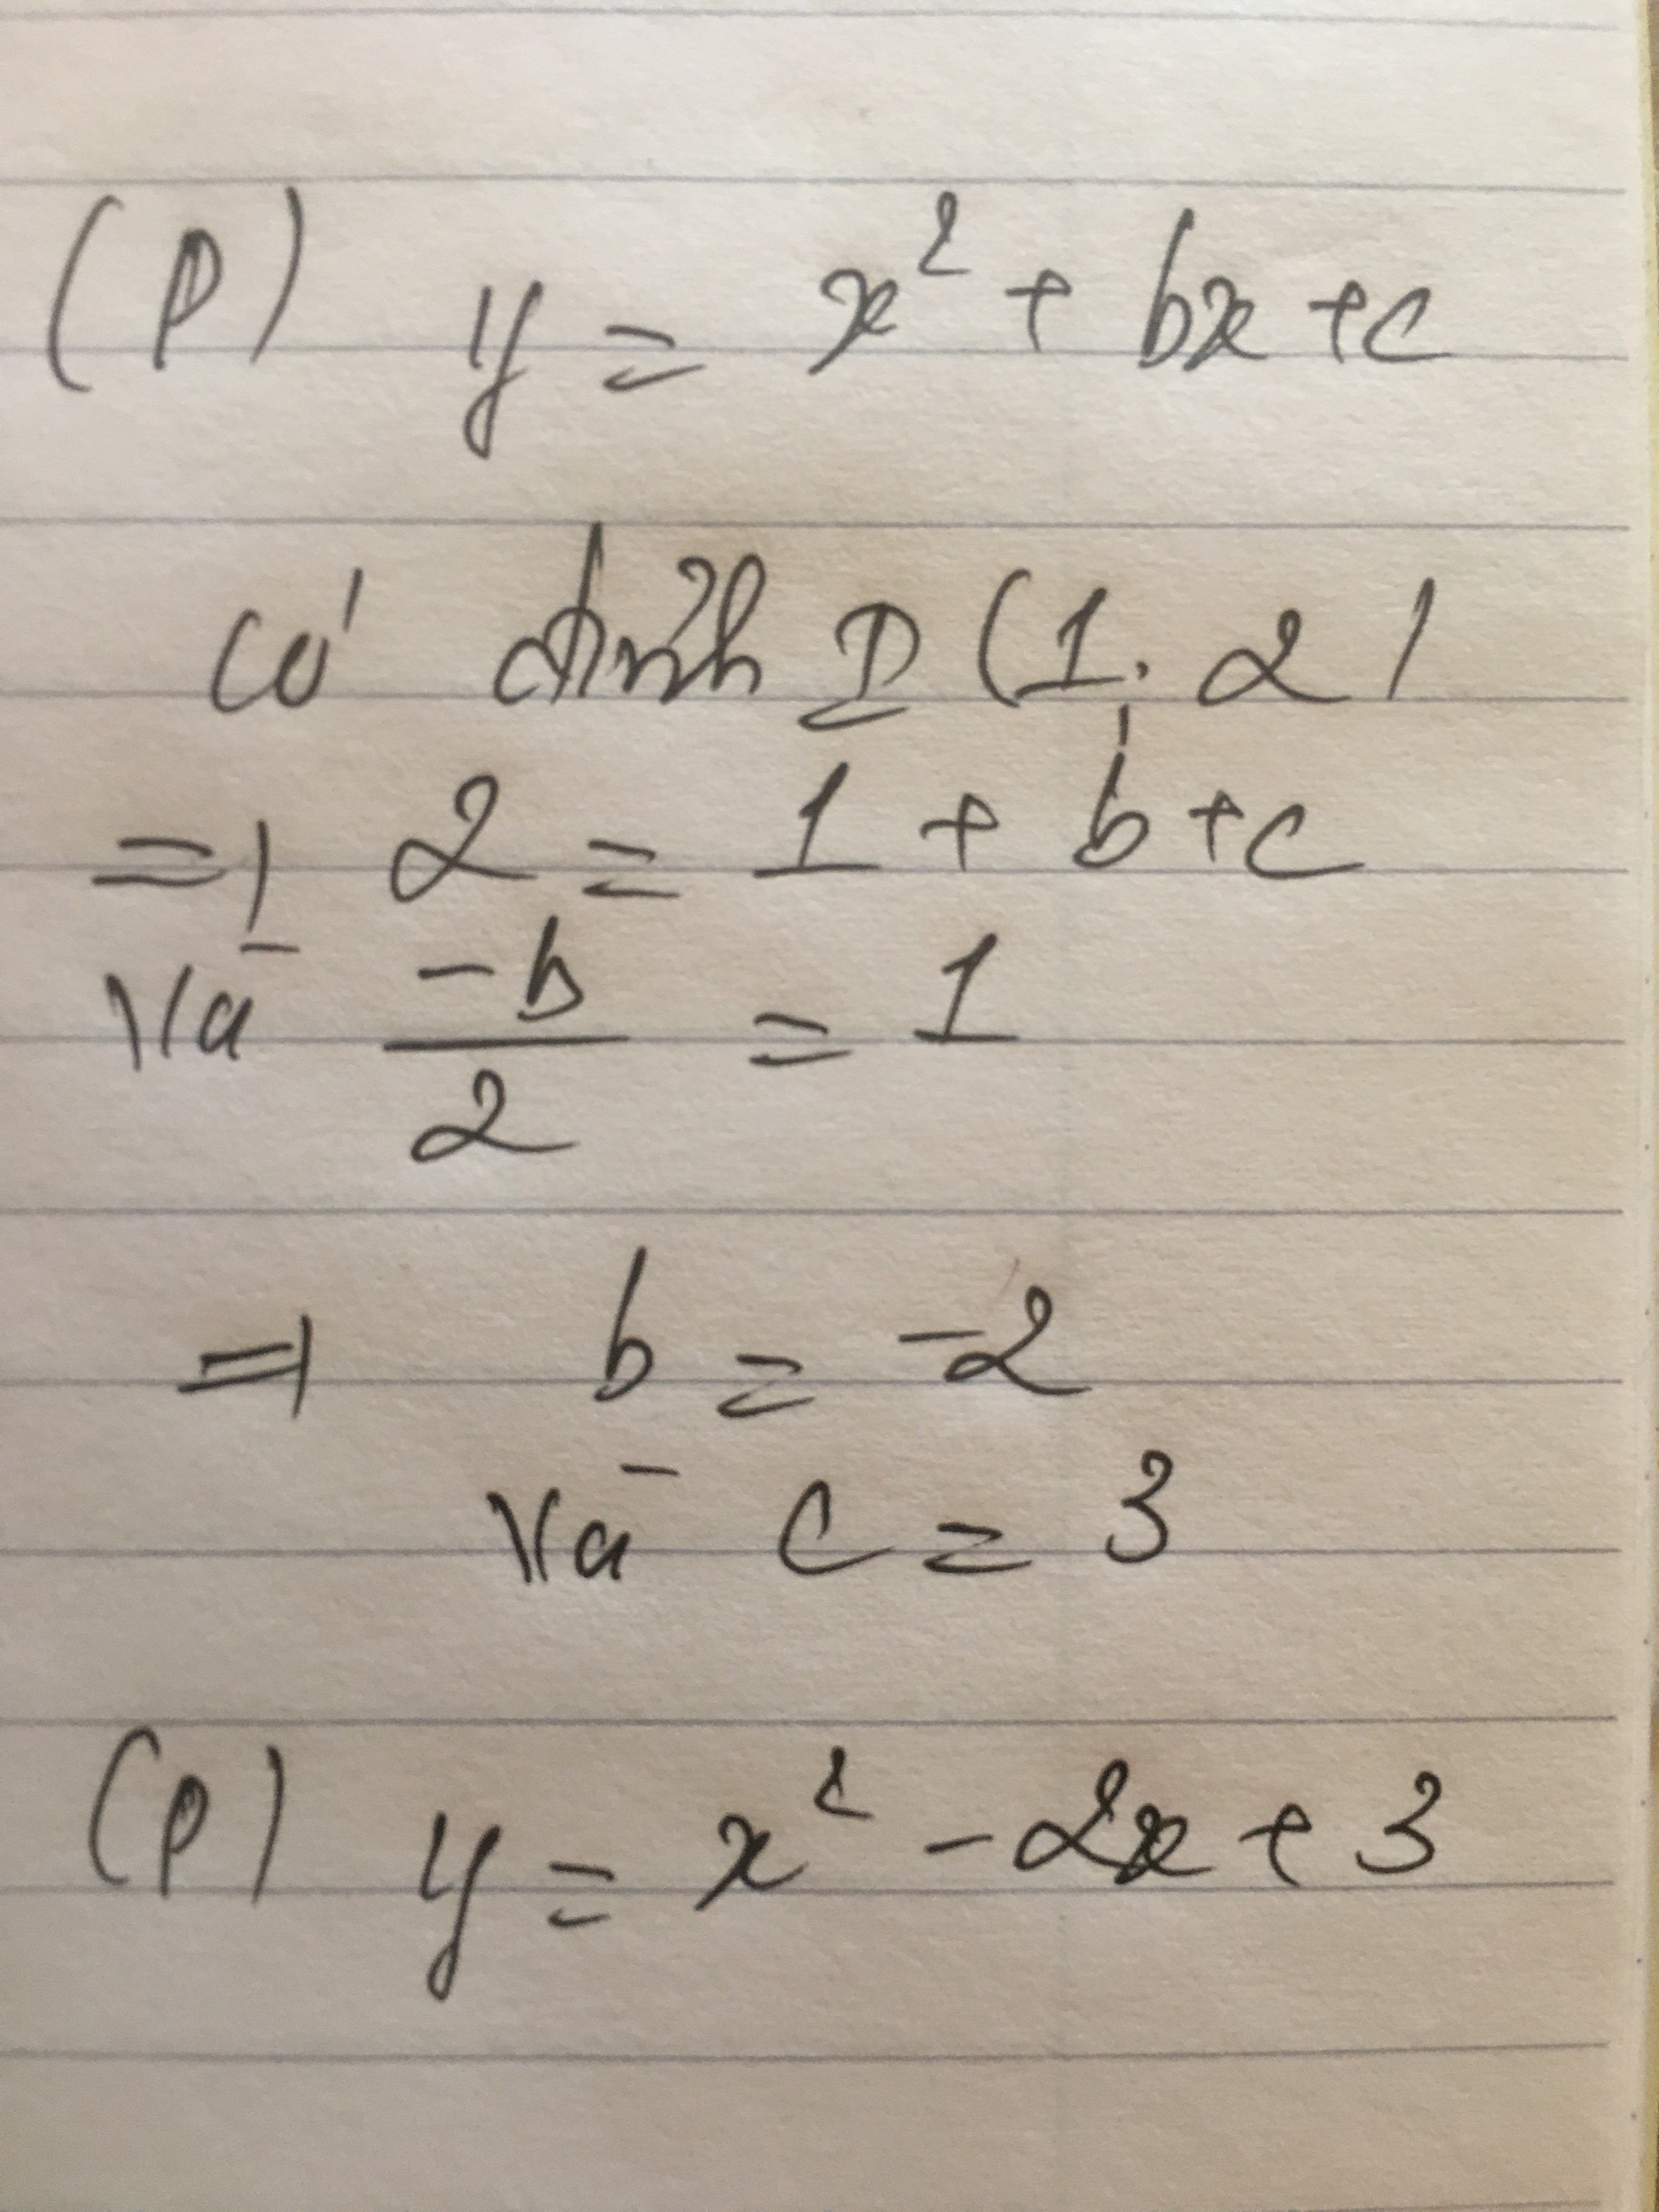 (P) y = x² + bx + c
có đỉnh I (1; 2)
=> 2 = 1 + b + c
Và -b/2 = 1
=> b = -2
Và c = 3
(P) y = x² - 2x + 3